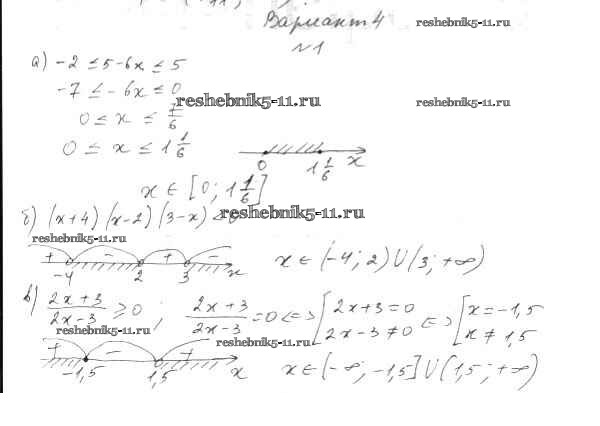 Вариант 4 reshebnik5-11.ru
№1
а) -2 ≤ 5-6x ≤ 5
-7 ≤ -6x ≤ 0
reshebnik5-11.ru reshebnik5-11.ru
0 ≤ x ≤ 7/6
0 ≤ x ≤ 1 1/6
0 1 1/6 x
x ∈ [0; 1 1/6]
б) (x+4)(x-2)(3-x) < 0 reshebnik5-11.ru
reshebnik5-11.ru
+ - + -
-4 2 3 x
x ∈ (-4; 2) ∪ (3; +∞)
в) (2x+3)/(2x-3) ≥ 0; (2x+3)/(2x-3) = 0 <=> [2x+3=0 2x-3≠0 <=> [x=-1,5 x≠1,5
reshebnik5-11.ru reshebnik5-11.ru
+ - +
-1,5 1,5 x
x ∈ (-∞; -1,5] ∪ (1,5; +∞)